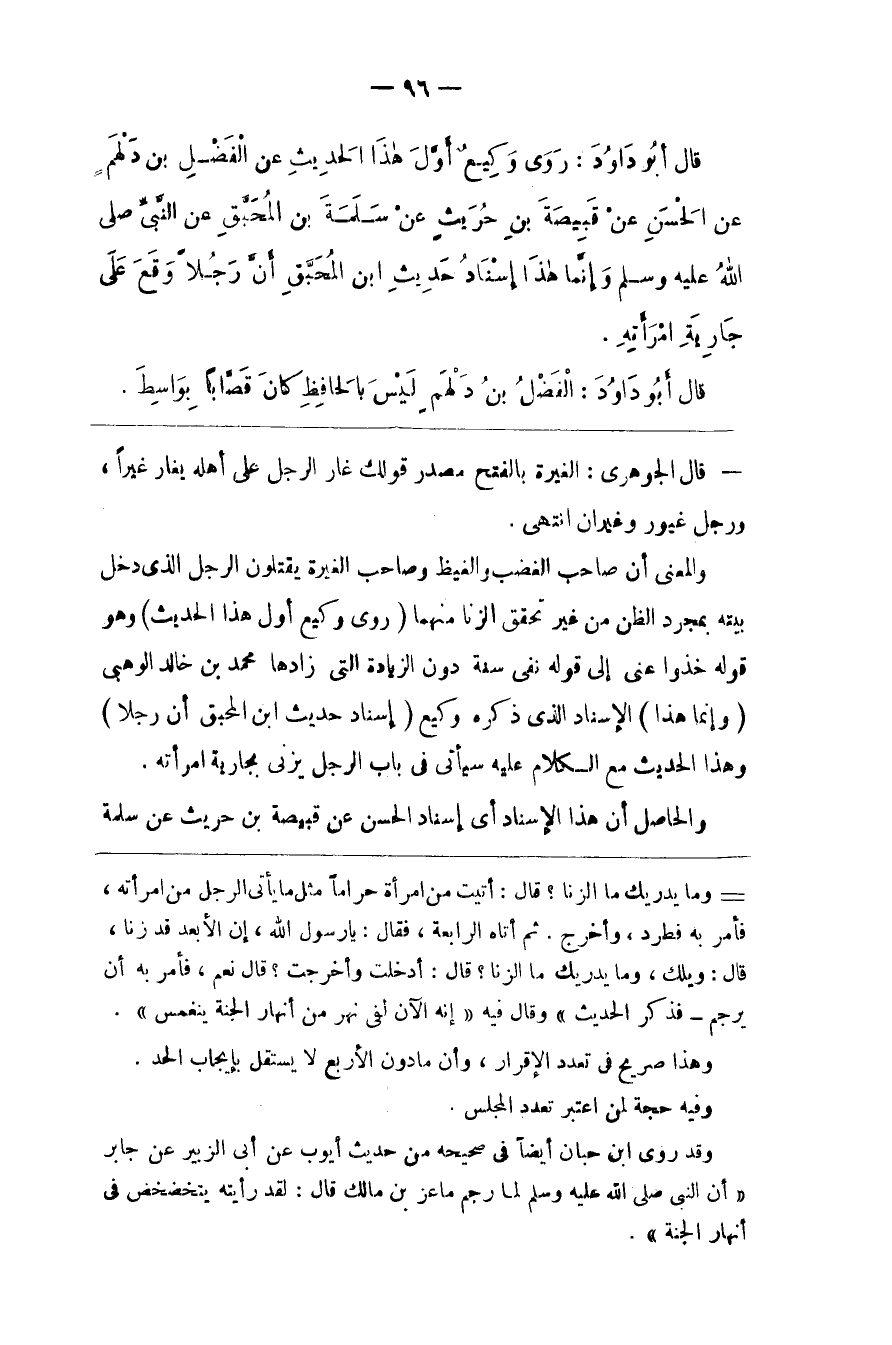 — ٩٦ —
قال أبُو دَاوُدَ : رَوَى وَكِيعٌ أوَّلَ هٰذَا الحَدِيثِ عن الْفَضْلِ بن دَلْهَمٍ
عن الْحَسَنِ عنْ قَبِيصَةَ بنِ حُرَيْثٍ عنْ سَلَمَةَ بن المُحَبَّقِ عن النَّبيِّ صلى
اللهُ عليه وسلم وَإنَّمَا هٰذَا إسْنَادُ حَدِيثِ ابن المُحَبَّقِ أنَّ رَجُلاً وَقَعَ عَلَى
جَارِيَةِ امْرَأَتِهِ .
قال أَبُو دَاوُدَ : الْفَضْلُ بنُ دَلْهَمٍ لَيْسَ بالحَافِظِ كَانَ قَصَّابًا بِوَاسِطَ .
— قال الجوهرى : الغيرة بالفتح مصدر قولك غار الرجل على أهله يغار غيراً ،
ورجل غيور وغيران انتهى .
والمعنى أن صاحب الغضب والغيظ وصاحب الغيرة يقتلون الرجل الذى دخل
بيته بمجرد الظن من غير تحقق الزنا منهما ( روى وكيع أول هذا الحديث ) وهو
قوله خذوا عنى إلى قوله نفى سنة دون الزيادة التى زادها محمد بن خالد الوهبى
( وإنما هذا ) الإسناد الذى ذكره وكيع ( إسناد حديث ابن المحبق أن رجلا )
وهذا الحديث مع الكلام عليه سيأتى فى باب الرجل يزنى بجارية امرأته .
والحاصل أن هذا الإسناد أى إسناد الحسن عن قبيصة بن حريث عن سلمة
= وما يدريك ما الزنا ؟ قال : أتيت من امرأة حراماً مثل ما يأتى الرجل من امرأته ،
فأمر به فطرد ، وأخرج . ثم أتاه الرابعة ، فقال : يارسول الله ، إن الأبعد قد زنا ،
قال : ويلك ، وما يدريك ما الزنا ؟ قال : أدخلت وأخرجت ؟ قال نعم ، فأمر به أن
يرجم – فذكر الحديث » وقال فيه « إنه الآن لفى نهر من أنهار الجنة ينغمس » .
وهذا صريح فى تعدد الإقرار ، وأن مادون الأربع لا يستقل بإيجاب الحد .
وفيه حجة لمن اعتبر تعدد المجلس .
وقد روى ابن حبان أيضاً فى صحيحه من حديث أيوب عن أبى الزبير عن جابر
« أن النبى صلى الله عليه وسلم لما رجم ماعز بن مالك قال : لقد رأيته يتخضخض فى
أنهار الجنة » .